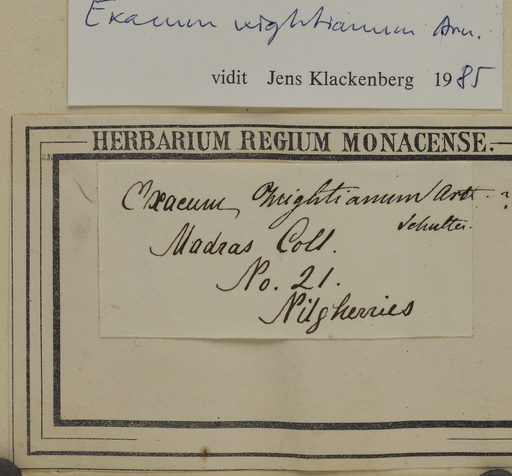 Exacum wightianum Arn.
vidit Jens Klackenberg 1985
HERBARIUM REGIUM MONACENSE.
Exacum Wightianum Arn. ?
Schulter.
Madras Coll.
No. 21.
Nilgherries